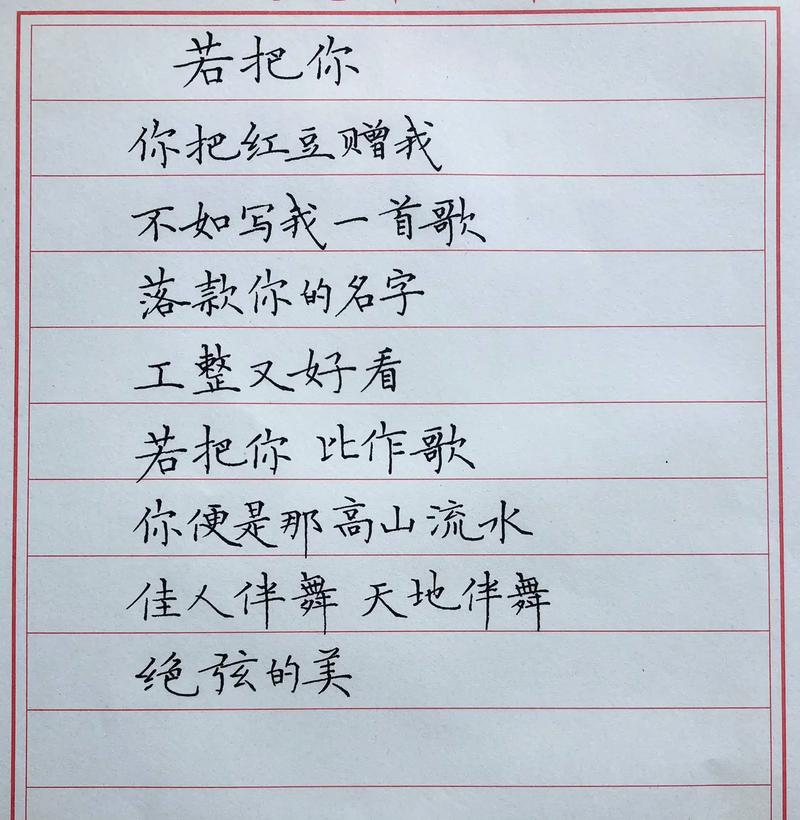 若把你
你把红豆赠我
不如写我一首歌
落款你的名字
工整又好看
若把你 比作歌
你便是那高山流水
佳人伴舞 天地伴舞
绝弦的美